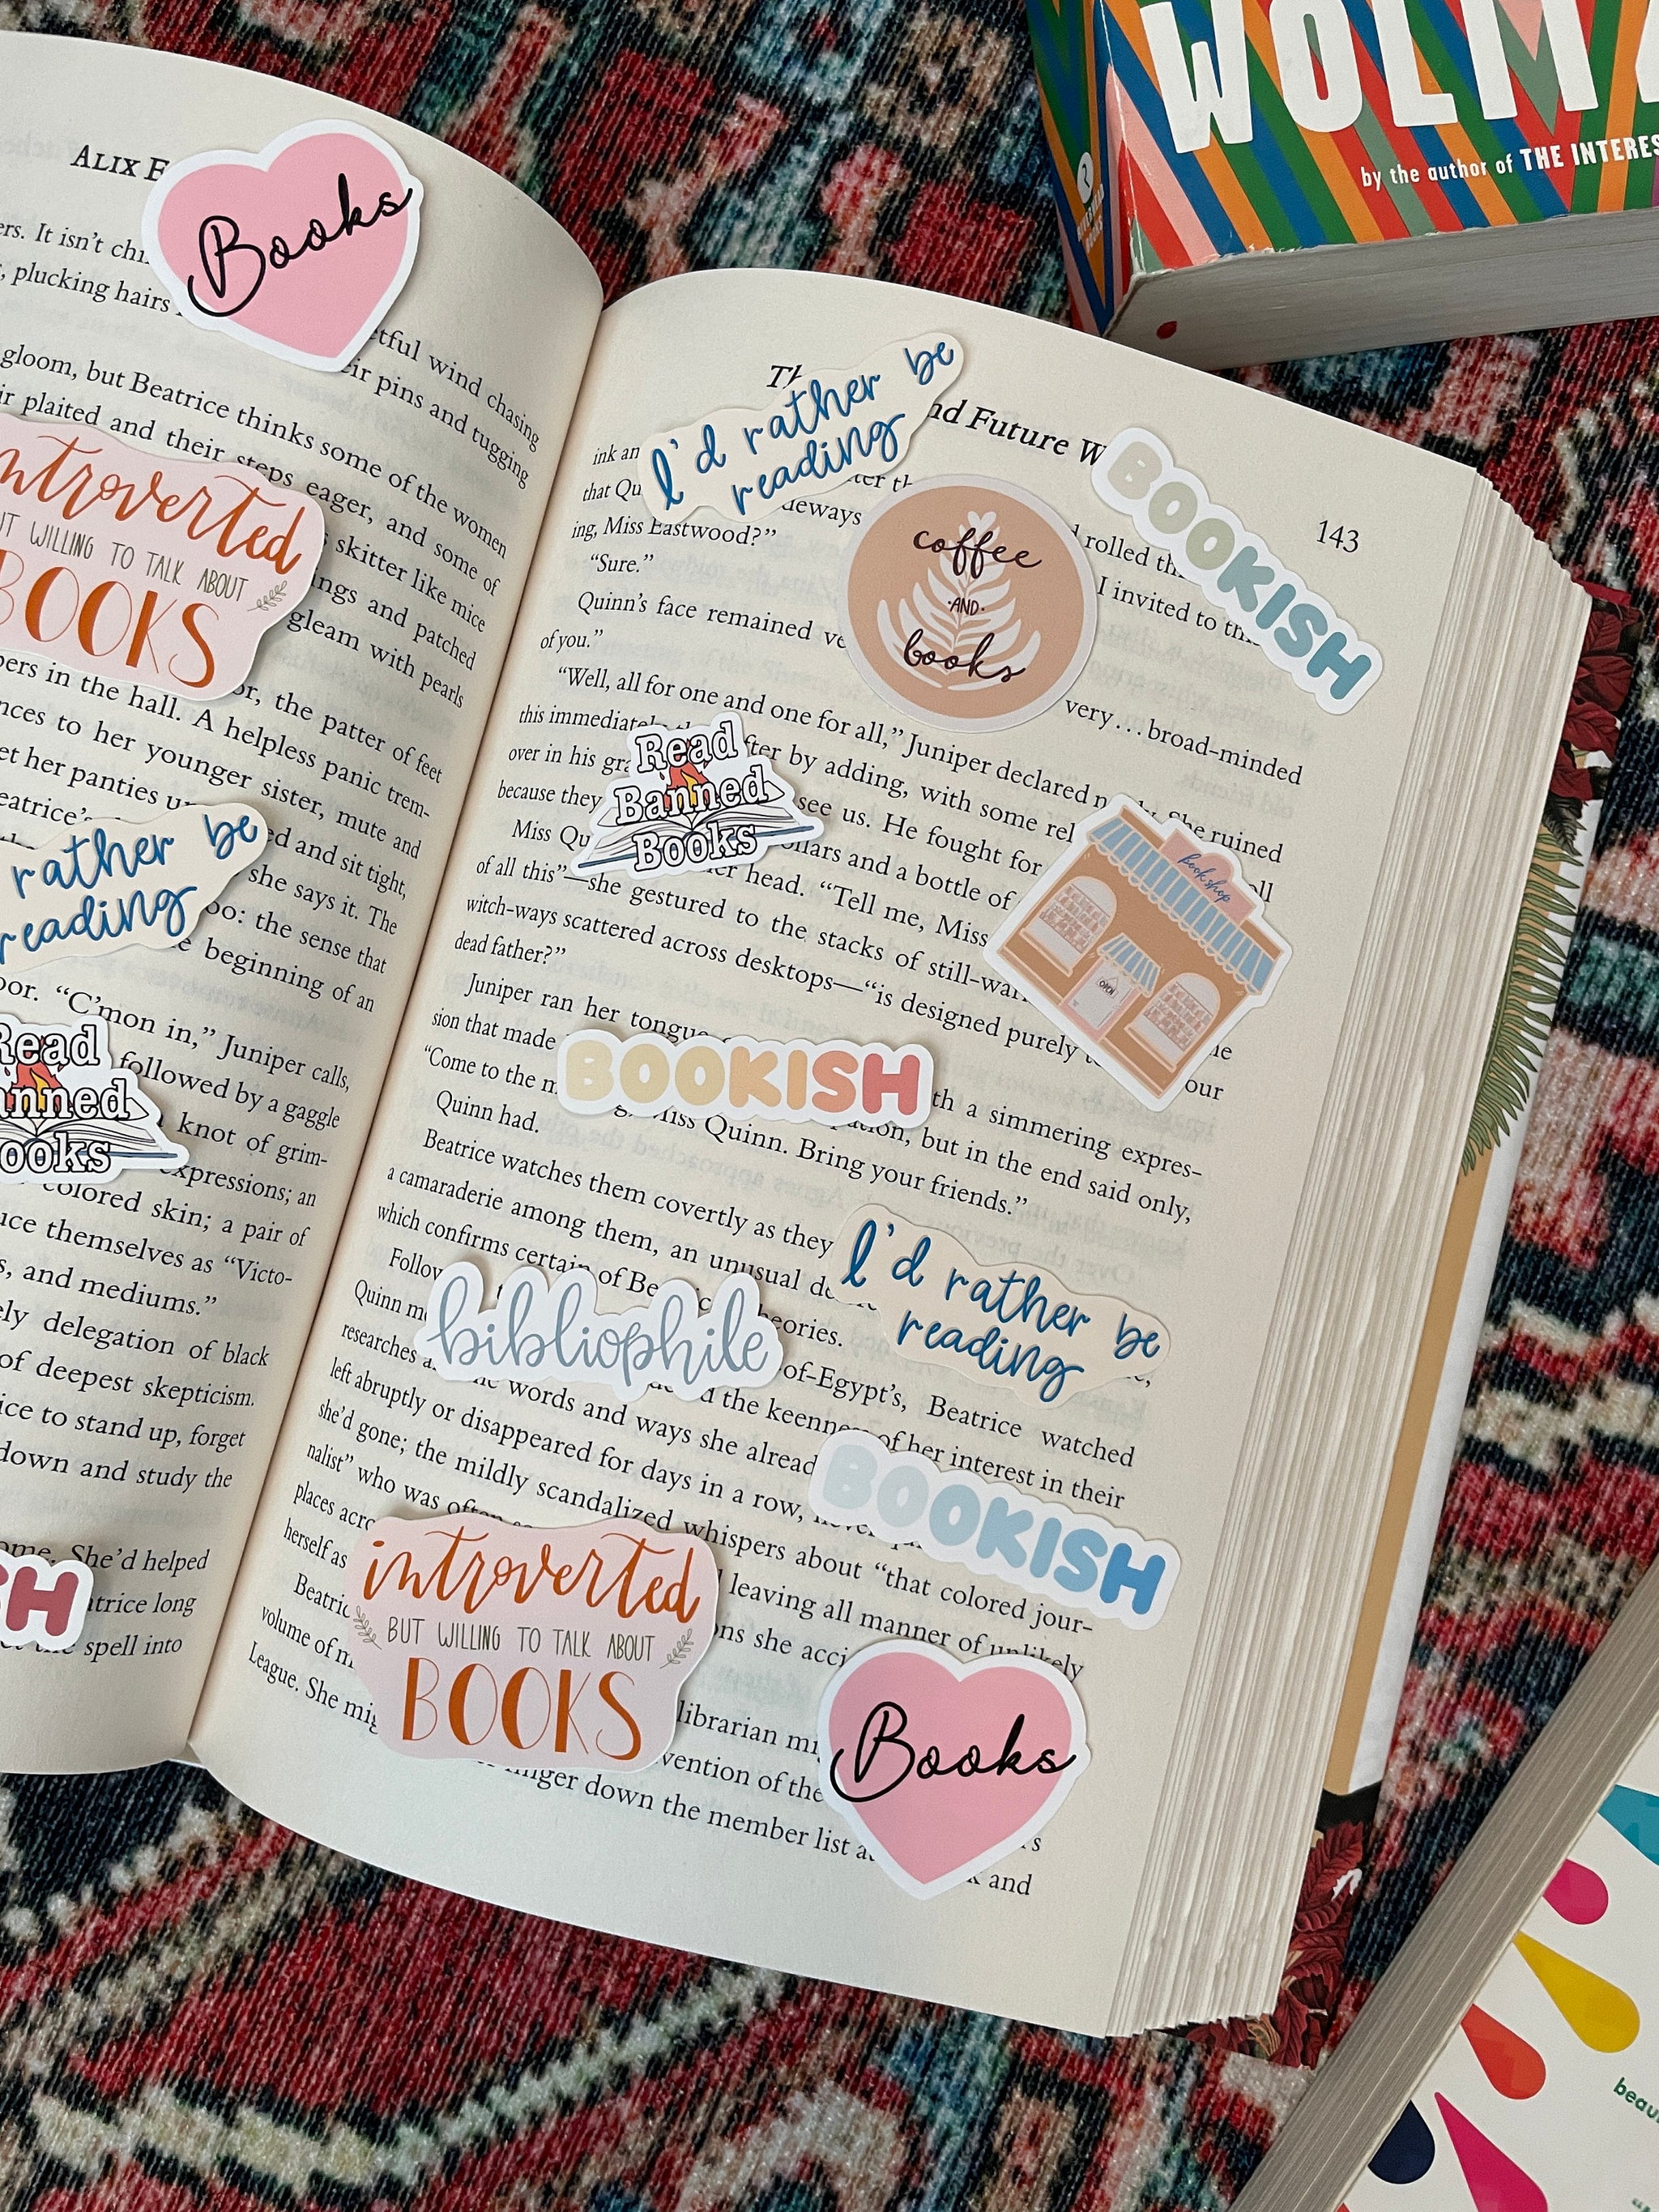 WOLITZ
by the author of THE INTERES
ALIX E
Books
ers. It isn't chi
, plucking hairs
etful wind chasing
eir pins and tugging
gloom, but Beatrice thinks some of the women
ir plaited and their steps eager, and some of
skitter like mice
ings and patched
gleam with pearls
introverted
BUT WILLING TO TALK ABOUT
BOOKS
or, the patter of feet
pers in the hall. A helpless panic trem-
nces to her younger sister, mute and
et her panties
ed and sit tight,
eatrice's
she says it. The
oo: the sense that
beginning of an
rather be
reading
oor. "C'mon in," Juniper calls,
followed by a gaggle
knot of grim-
expressions; an
Read
Banned
Books
colored skin; a pair of
uce themselves as "Victo-
s, and mediums."
ely delegation of black
of deepest skepticism.
ice to stand up, forget
down and study the
ome. She'd helped
atrice long
spell into
SH
nd Future W
143
I'd rather be
reading
BOOKISH
coffee
AND
books
ink an
rolled th
that Qu
deways
I invited to th
ing, Miss Eastwood?"
"Sure."
Quinn's face remained ve
very... broad-minded
of you."
"Well, all for one and one for all," Juniper declared
She ruined
this immediately
fter by adding, with some rel
over in his gra
see us. He fought for
because they
ollars and a bottle of
Read
Banned
Books
book shop
OPEN
Miss Qu
er head. "Tell me, Miss
of all this"—she gestured to the stacks of still-war
witch-ways scattered across desktops—"is designed purely
our
dead father?"
Juniper ran her tongue
th a simmering expres-
sion that made
ation, but in the end said only,
"Come to the m
Miss Quinn. Bring your friends."
BOOKISH
Quinn had.
Beatrice watches them covertly as they
a camaraderie among them, an unusual
which confirms certain of Bea
theories.
I'd rather be
reading
bibliophile
Follow
of-Egypt's, Beatrice watched
Quinn m
the keenness of her interest in their
researches
words and ways she alread
left abruptly or disappeared for days in a row,
she'd gone; the mildly scandalized whispers about "that colored jour-
nalist" who was often
leaving all manner of unlikely
places acro
ns she acci
herself as
BOOKISH
introverted
BUT WILLING TO TALK ABOUT
BOOKS
Beatric
librarian mi
volume of m
vention of the
League. She mig
finger down the member list
and
Books
beau